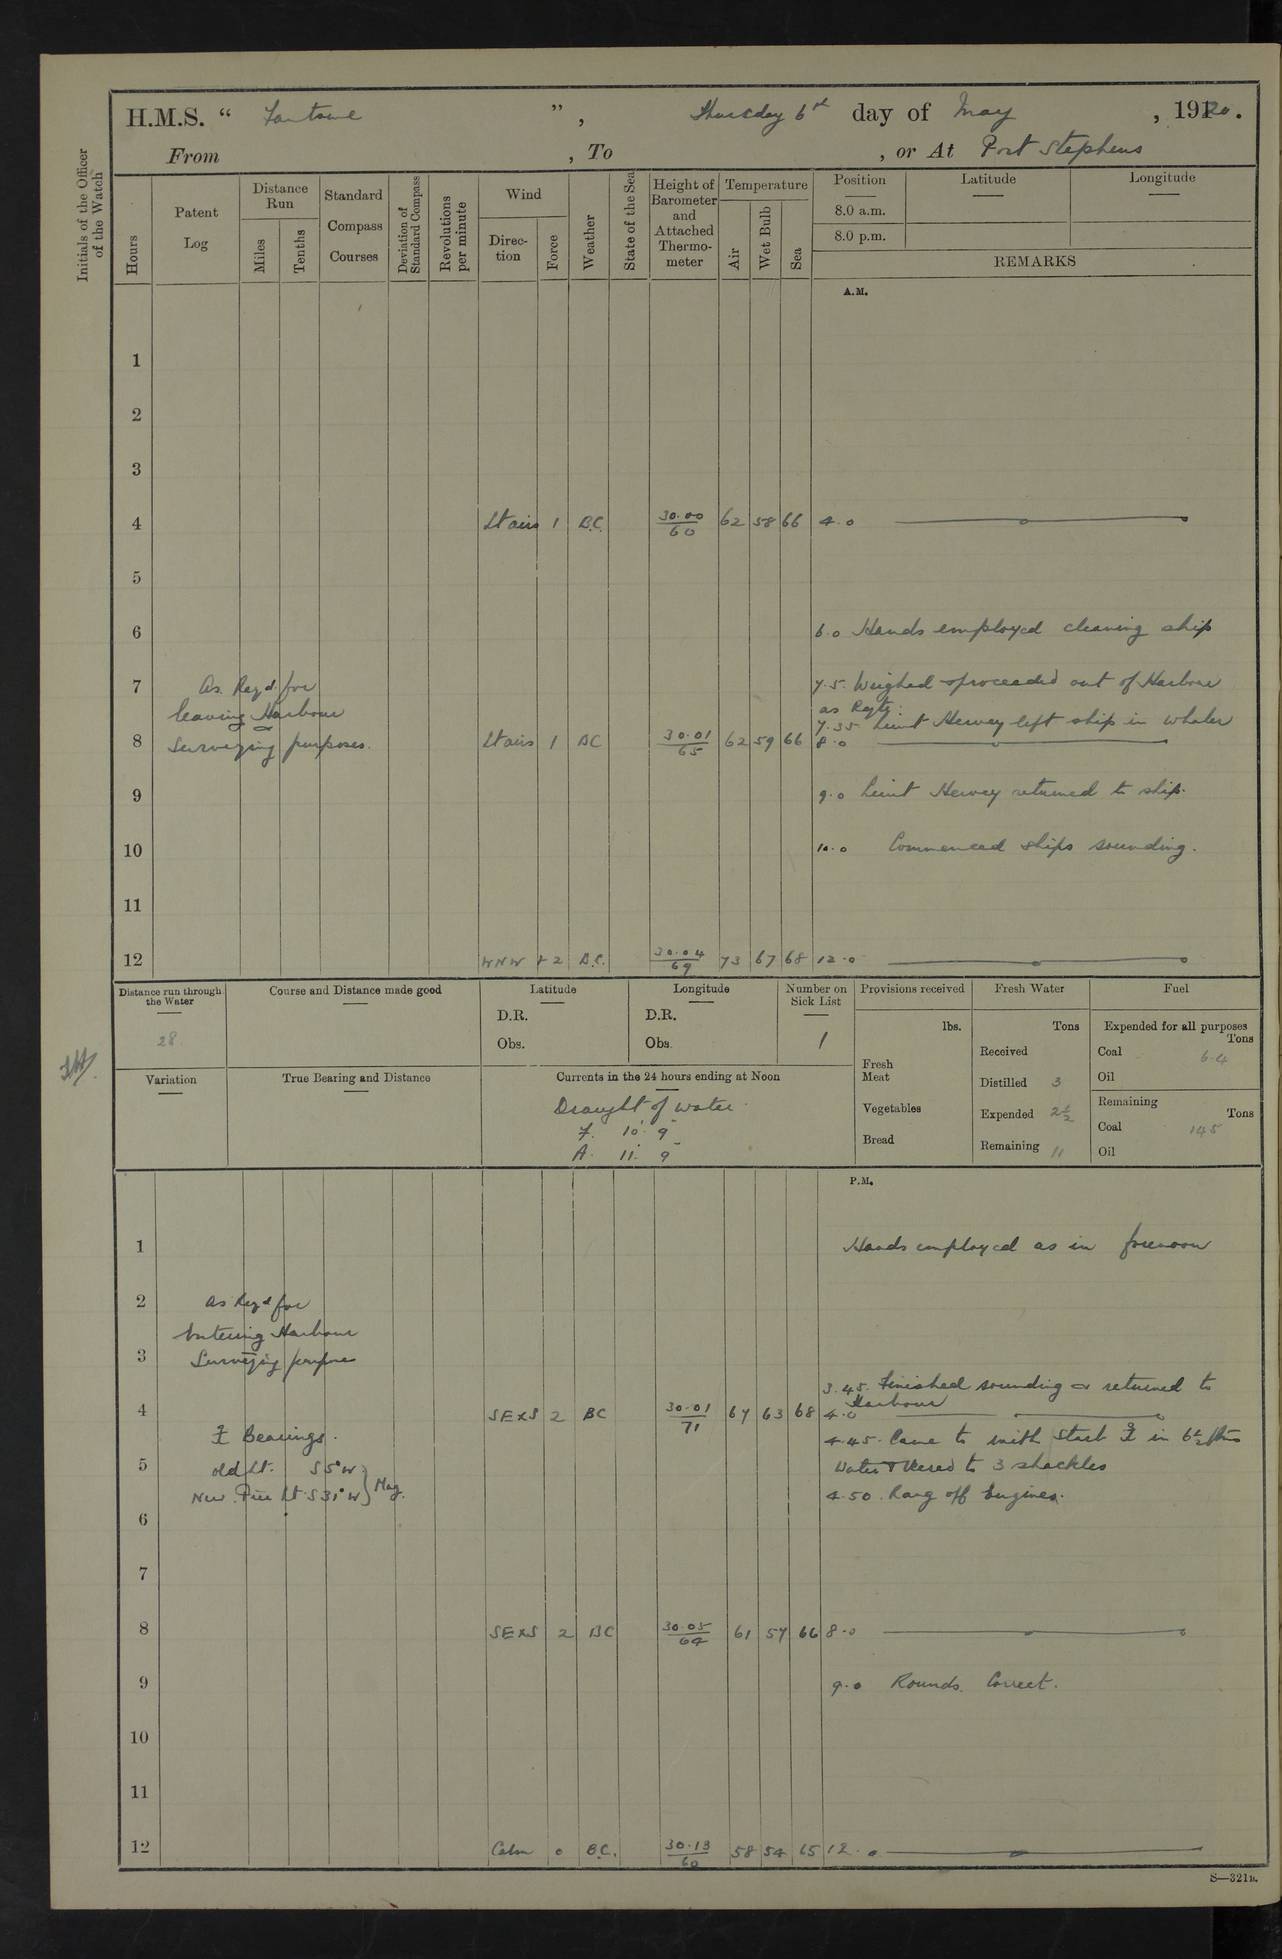 H.M.S. “ Fantome ”, Thursday 6th day of May, 1920.
From , To , or At Port Stephens
Initials of the Officer of the Watch
Hours
Patent Log
Distance Run
Miles
Tenths
Standard Compass Courses
Deviation of Standard Compass
Revolutions per minute
Wind
Direction
Force
Weather
State of the Sea
Height of Barometer and Attached Thermometer
Temperature
Air
Wet Bulb
Sea
Position Latitude Longitude
8.0 a.m.
8.0 p.m.
REMARKS
A.M.
1
2
3
4 Lt airs 1 B.C. 30.00/60 62 58 66 4.0
5
6 6.0 Hands employed cleaning ship
7 As Reqd for 7.5. Weighed & proceeded out of Harbour
leaving Harbour as Reqte:
& 7.35 Lieut Hervey left ship in whaler
8 Surveying purposes. Lt airs 1 BC 30.01/65 62 59 66 8.0
9 9.0 Lieut Hervey returned to ship.
10 10.0 Commenced ships sounding.
11
12 WNW 1-2 B.C. 30.04/69 73 67 68 12.0
Distance run through the Water
28
Course and Distance made good
Latitude
D.R.
Obs.
Longitude
D.R.
Obs.
Number on Sick List
1
Provisions received
lbs.
Fresh Meat
Vegetables
Bread
Fresh Water
Tons
Received
Distilled 3
Expended 2½
Remaining 11
Fuel
Expended for all purposes
Tons
Coal 6.4
Oil
Remaining
Tons
Coal 145
Oil
Variation
True Bearing and Distance
Currents in the 24 hours ending at Noon
Draught of water.
F. 10' 9"
A. 11' 9"
P.M.
1 Hands employed as in forenoon
2 As Reqd for
Entering Harbour
&
3 Surveying purposes
3.45. Finished sounding & returned to
Harbour
4 SE×S 2 BC 30.01/71 67 63 68 4.0
⚓ Bearings. 4.45. Came to with Starb ⚓ in 6½ fms
5 Old Lt. S 5° W water & Veered to 3 shackles
New Pier Lt. S 31° W } Mag. 4.50. Rang off Engines.
6
7
8 SE×S 2 BC 30.05/64 61 57 66 8.0
9 9.0 Rounds. Correct.
10
11
12 Calm 0 B.C. 30.13/60 58 54 65 12.0
S—321B.